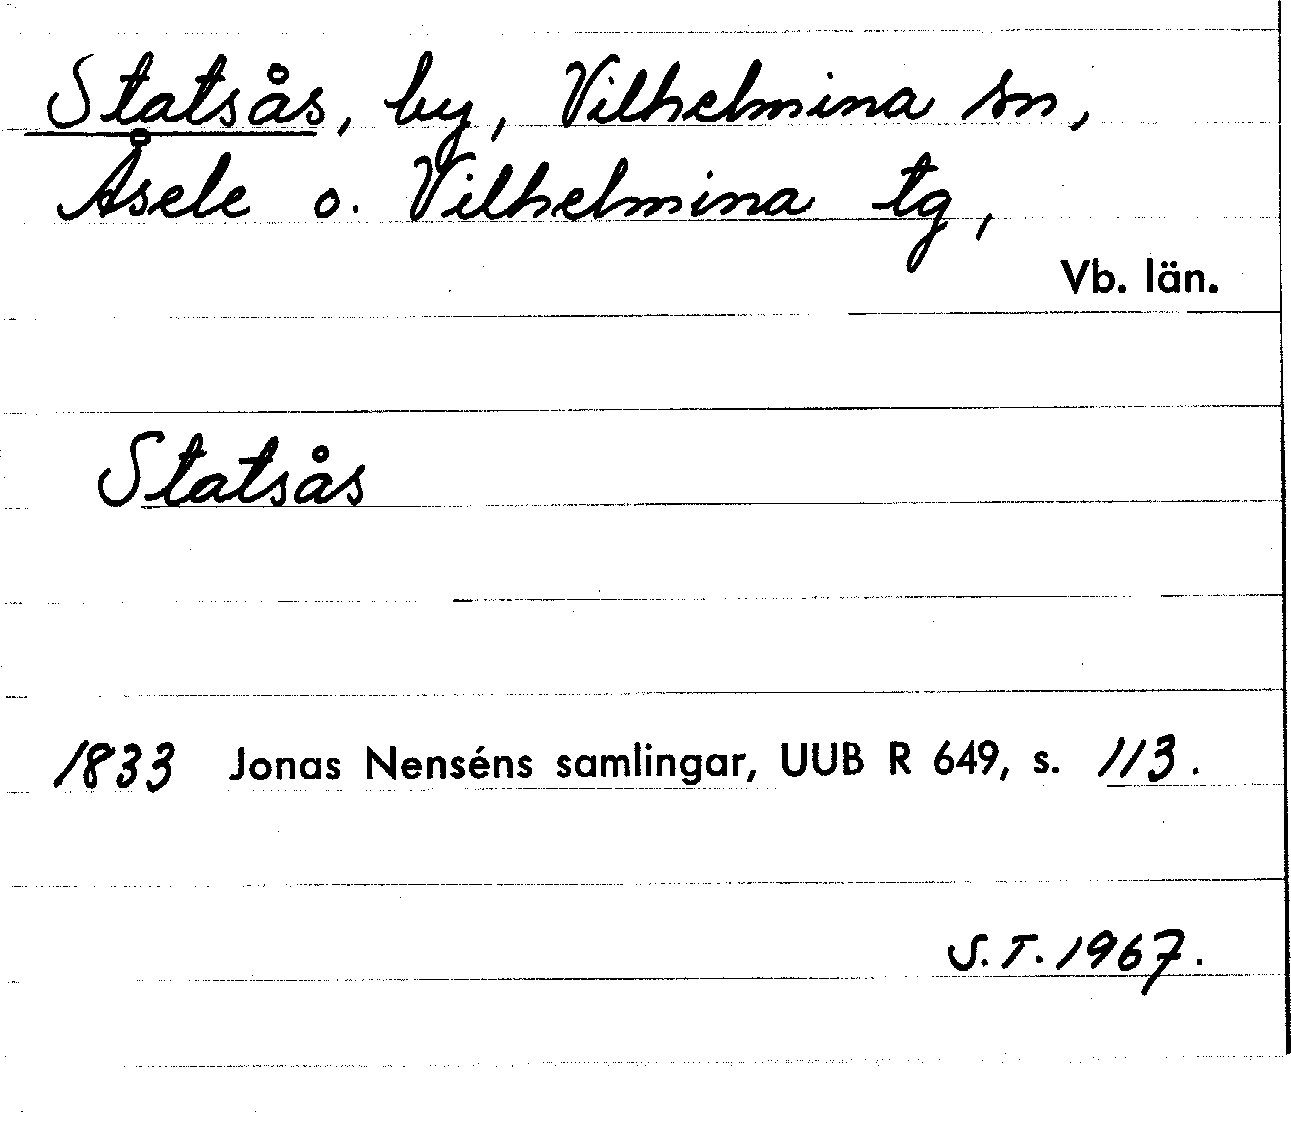 Statsås, by, Vilhelmina sn,
Åsele o. Vilhelmina tg,
Vb. län.
Statsås
1833 Jonas Nenséns samlingar, UUB R 649, s. 113.
S.T. 1967.